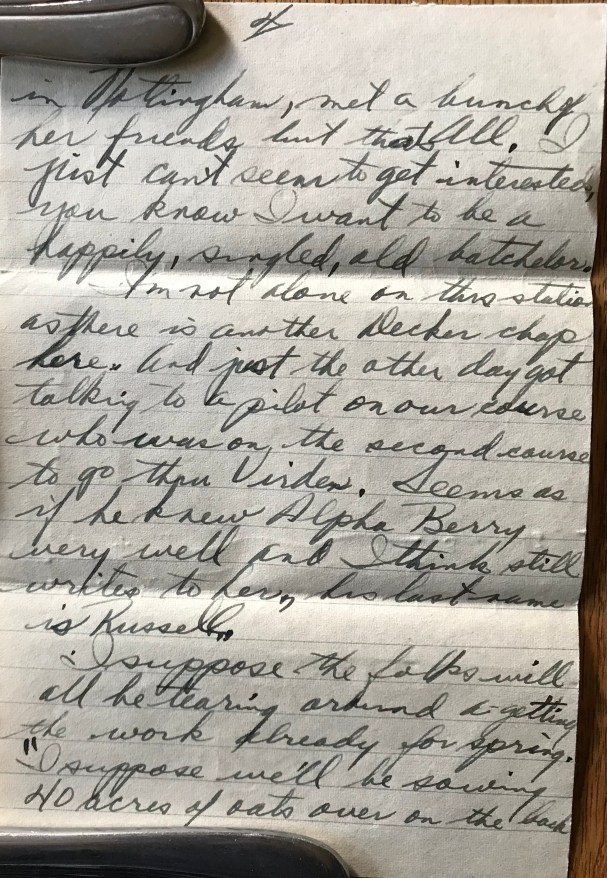 of
in Nottingham, met a bunch of
her friends but that's All. I
just can't seem to get interested,
you know I want to be a
happily, singled, old batchelor.
I'm not alone on this station
as there is another Decker chap
here. And just the other day got
talking to a pilot on our course
who was on the second course
to go thru Virden. Seems as
if he knew Alpha Berry
very well and I think still
writes to her, his last name
is Russell.
I suppose the folks will
all be tearing around a-getting
the work already for spring.
"I suppose we'll be sowing
40 acres of oats over on the back